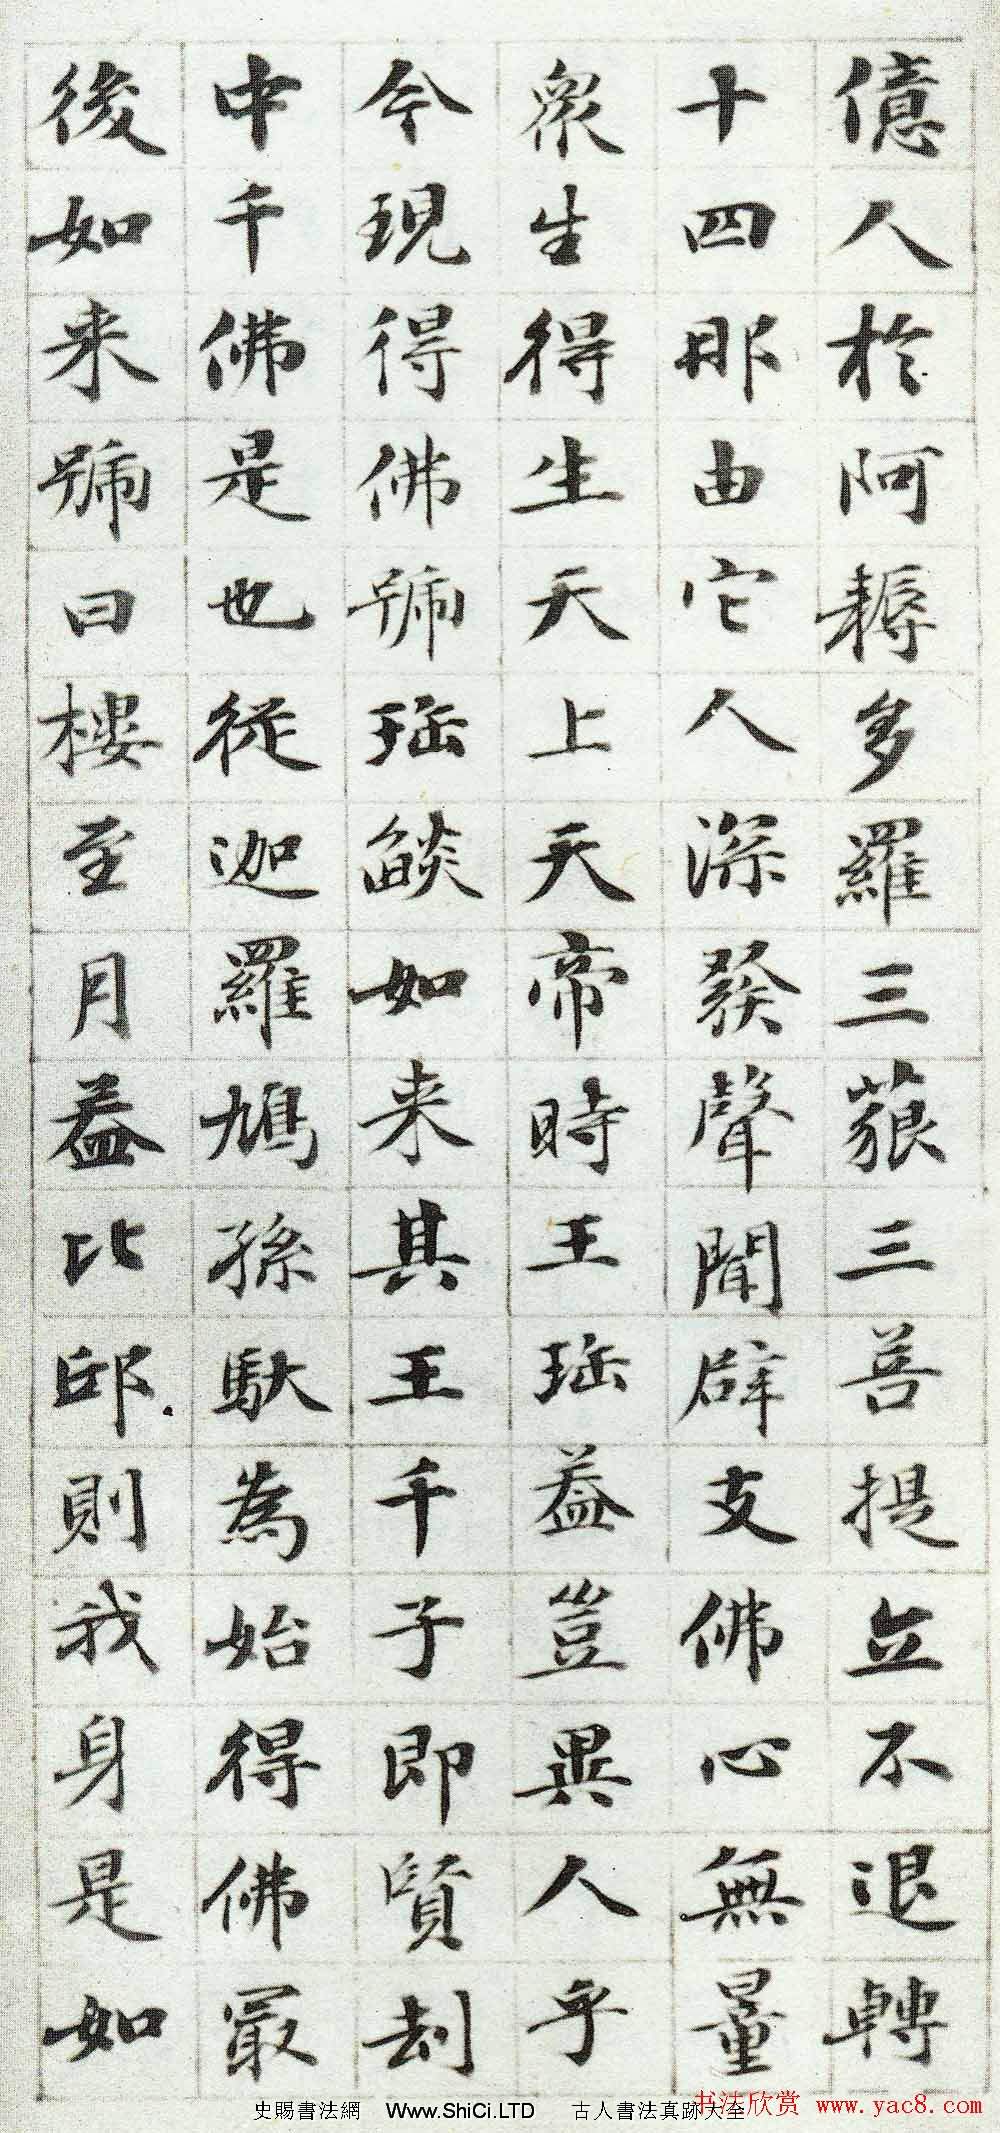 億人於阿耨多羅三藐三菩提立不退轉
十四那由它人深發聲聞辟支佛心無量
眾生得生天上天帝時王珤葢豈異人乎
今現得佛號珤燄如来其王千子即賢劫
中千佛是也從迦羅鳩孫馱為始得佛最
後如来號曰樓至月葢比邱則我身是如
史賜書法網 Www.ShiCi.LTD 古人書法真跡大全
书法欣赏 www.yac8.com